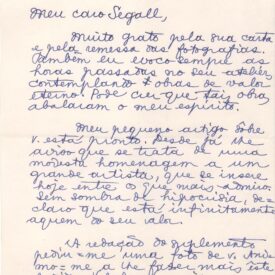 Meu caro Segall,
Muito grato pela sua carta
e pela remessa das fotografias.
Também eu evoco sempre as
horas passadas no seu atelier,
contemplando obras de valor
eterno! Pode crer que tais obras
abalaram o meu espírito.
Meu pequeno artigo sobre
v. está pronto. Desde já lhe
aviso que se trata de uma
modesta homenagem a um
grande artista, que se insere
hoje entre os que mais admiro
sem sombra de hipocrisia, de-
claro que está infinitamente
aquem do seu
A redação do suplemento
pediu-me uma foto de v. An
mo-me a lhe fazer